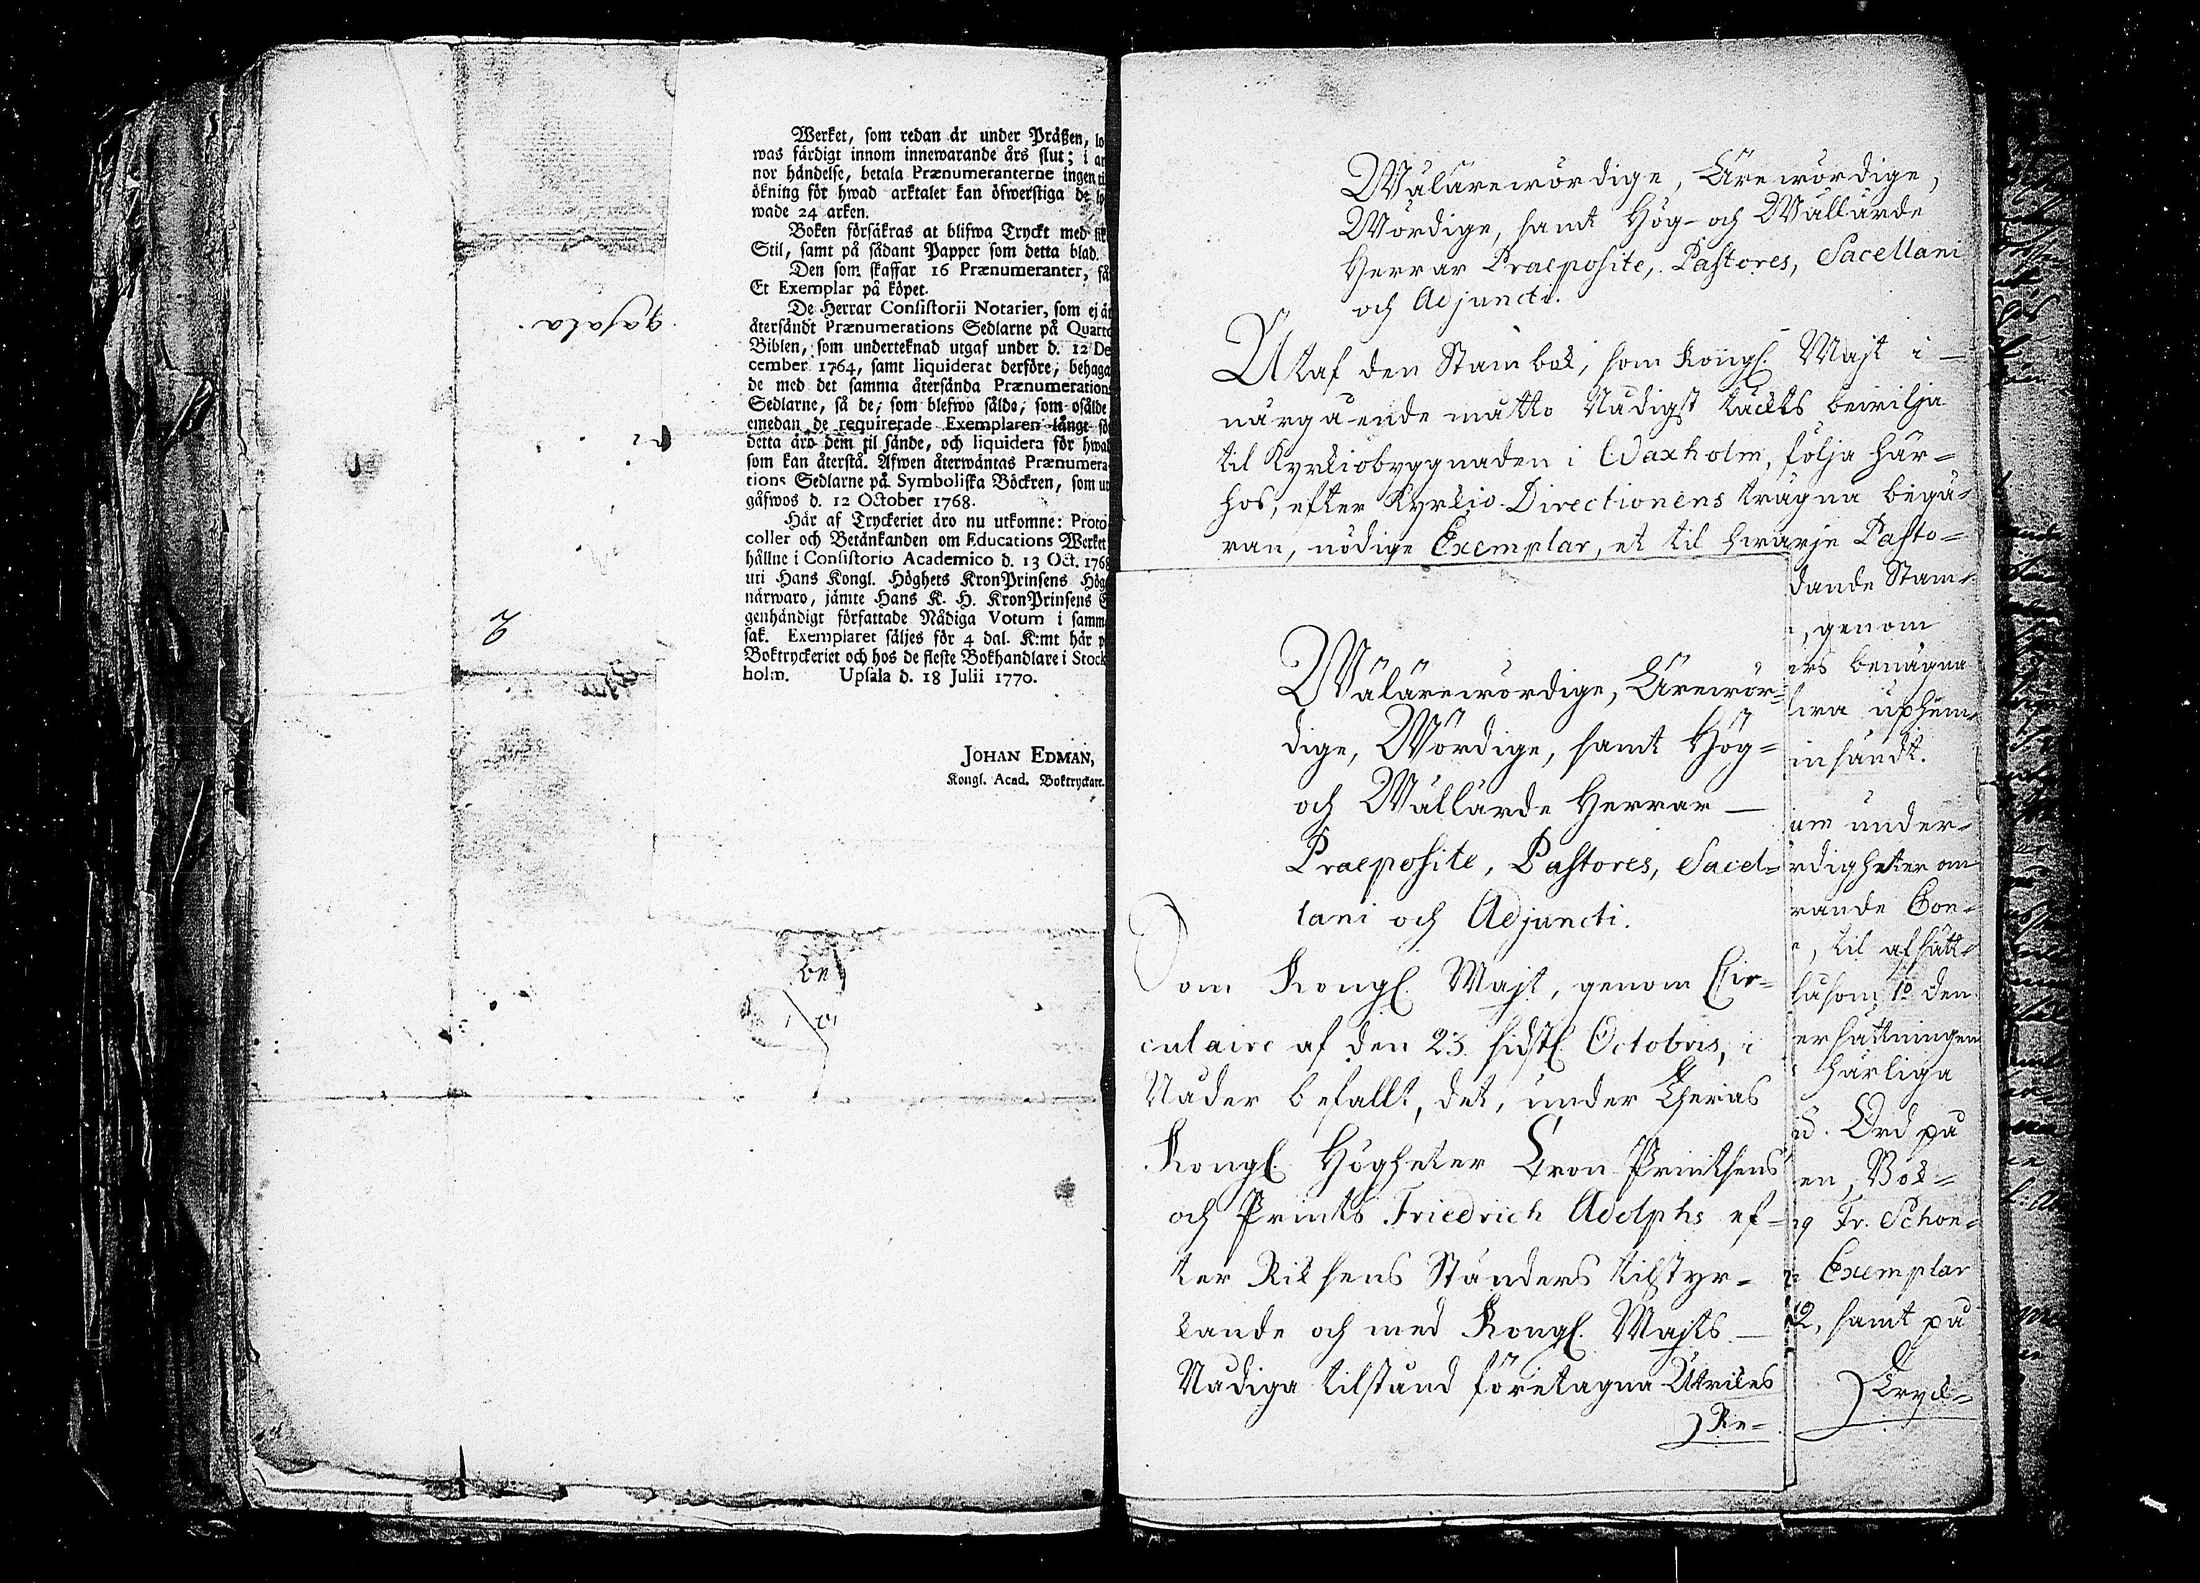 Werket, som redan är under Präßen, lo
was färdigt innom innewarande års slut; i an
nor händelse, betala Prænumeranterne ingen til
ökning för hwad arktalet kan öfwerstiga de lo
wade 24 arken.
Boken försäkras at blifwa Tryckt med lik
Stil, samt på sådant Papper som detta blad.
Den som skaffar 16 Prænumeranter, får
Et Exemplar på köpet.
De Herrar Consistorii Notarier, som ej än
återsändt Prænumerations Sedlarne på Quarto
Biblen, som underteknad utgaf under d. 12 De
cember 1764, samt liquiderat derföre, behaga
de med det samma återsända Prænumerations
Sedlarne, så de, som blefwo sålde, som osålde
emedan de requirerade Exemplaren långt för
detta äro dem til sände, och liquidera för hwad
som kan återstå. Äfwen återwäntas Prænumera
tions Sedlarne på Symboliska Böckren, som ut
gåfwos d. 12 October 1768.
Här af Tryckeriet äro nu utkomne: Proto
coller och Betänkanden om Educations Werket
hållne i Consistorio Academico d. 13 Oct. 1768
uti Hans Kongl. Höghets KronPrinsens Höga
närwaro, jämte Hans K. H. KronPrinsens E
genhändigt författade Nådiga Votum i samma
sak. Exemplaret säljes för 4 dal. K:mt här på
Boktryckeriet och hos de fleste Bokhandlare i Stock
holm. Upsala d. 18 Julii 1770.
JOHAN EDMAN,
Kongl. Acad. Boktryckare.
Wälärewördige, Ärewördige,
Wördige, samt Hög- och Wällärde
Herrar Praeposite, Pastores, Sacellani
och Adjuncti.
Utaf den Stambok, som Kongl. Majt i —
närgående måtto Nådigst täckts bewilja
til Kyrkiobyggnaden i Waxholm, följa här=
hos, efter Kyrkio-Directionens trägna begä=
ran, nödige Exemplar, et til hwarje Pasto=
dande Stam=
, genom
ers benägna
lwa uphem=
insändt.
um under=
rdigheter an
rande Con=
, til afsätt=
såsom 1º den
ersättningen
härliga
d. Ord på
en, Bok=
g Fr. Schon=
Exemplar
12, samt på
Tryck=
Wälärewördige, Ärewör=
dige, Wördige, samt Hög=
och Wällärde Herrar —
Praeposite, Pastores, Sacel=
lani och Adjuncti.
Som Kongl. Majt, genom Cir=
culaire af den 23. sidstl. Octobris, i
Nåder befallt, det, under Theras
Kongl. Högheter Cron-Printsens
och Prints Friedrich Adolphs ef=
ter Riksens Ständers tilstyr=
kande och med Kongl. Majts —
Nådiga tilstånd företagna Utrikes
Re=